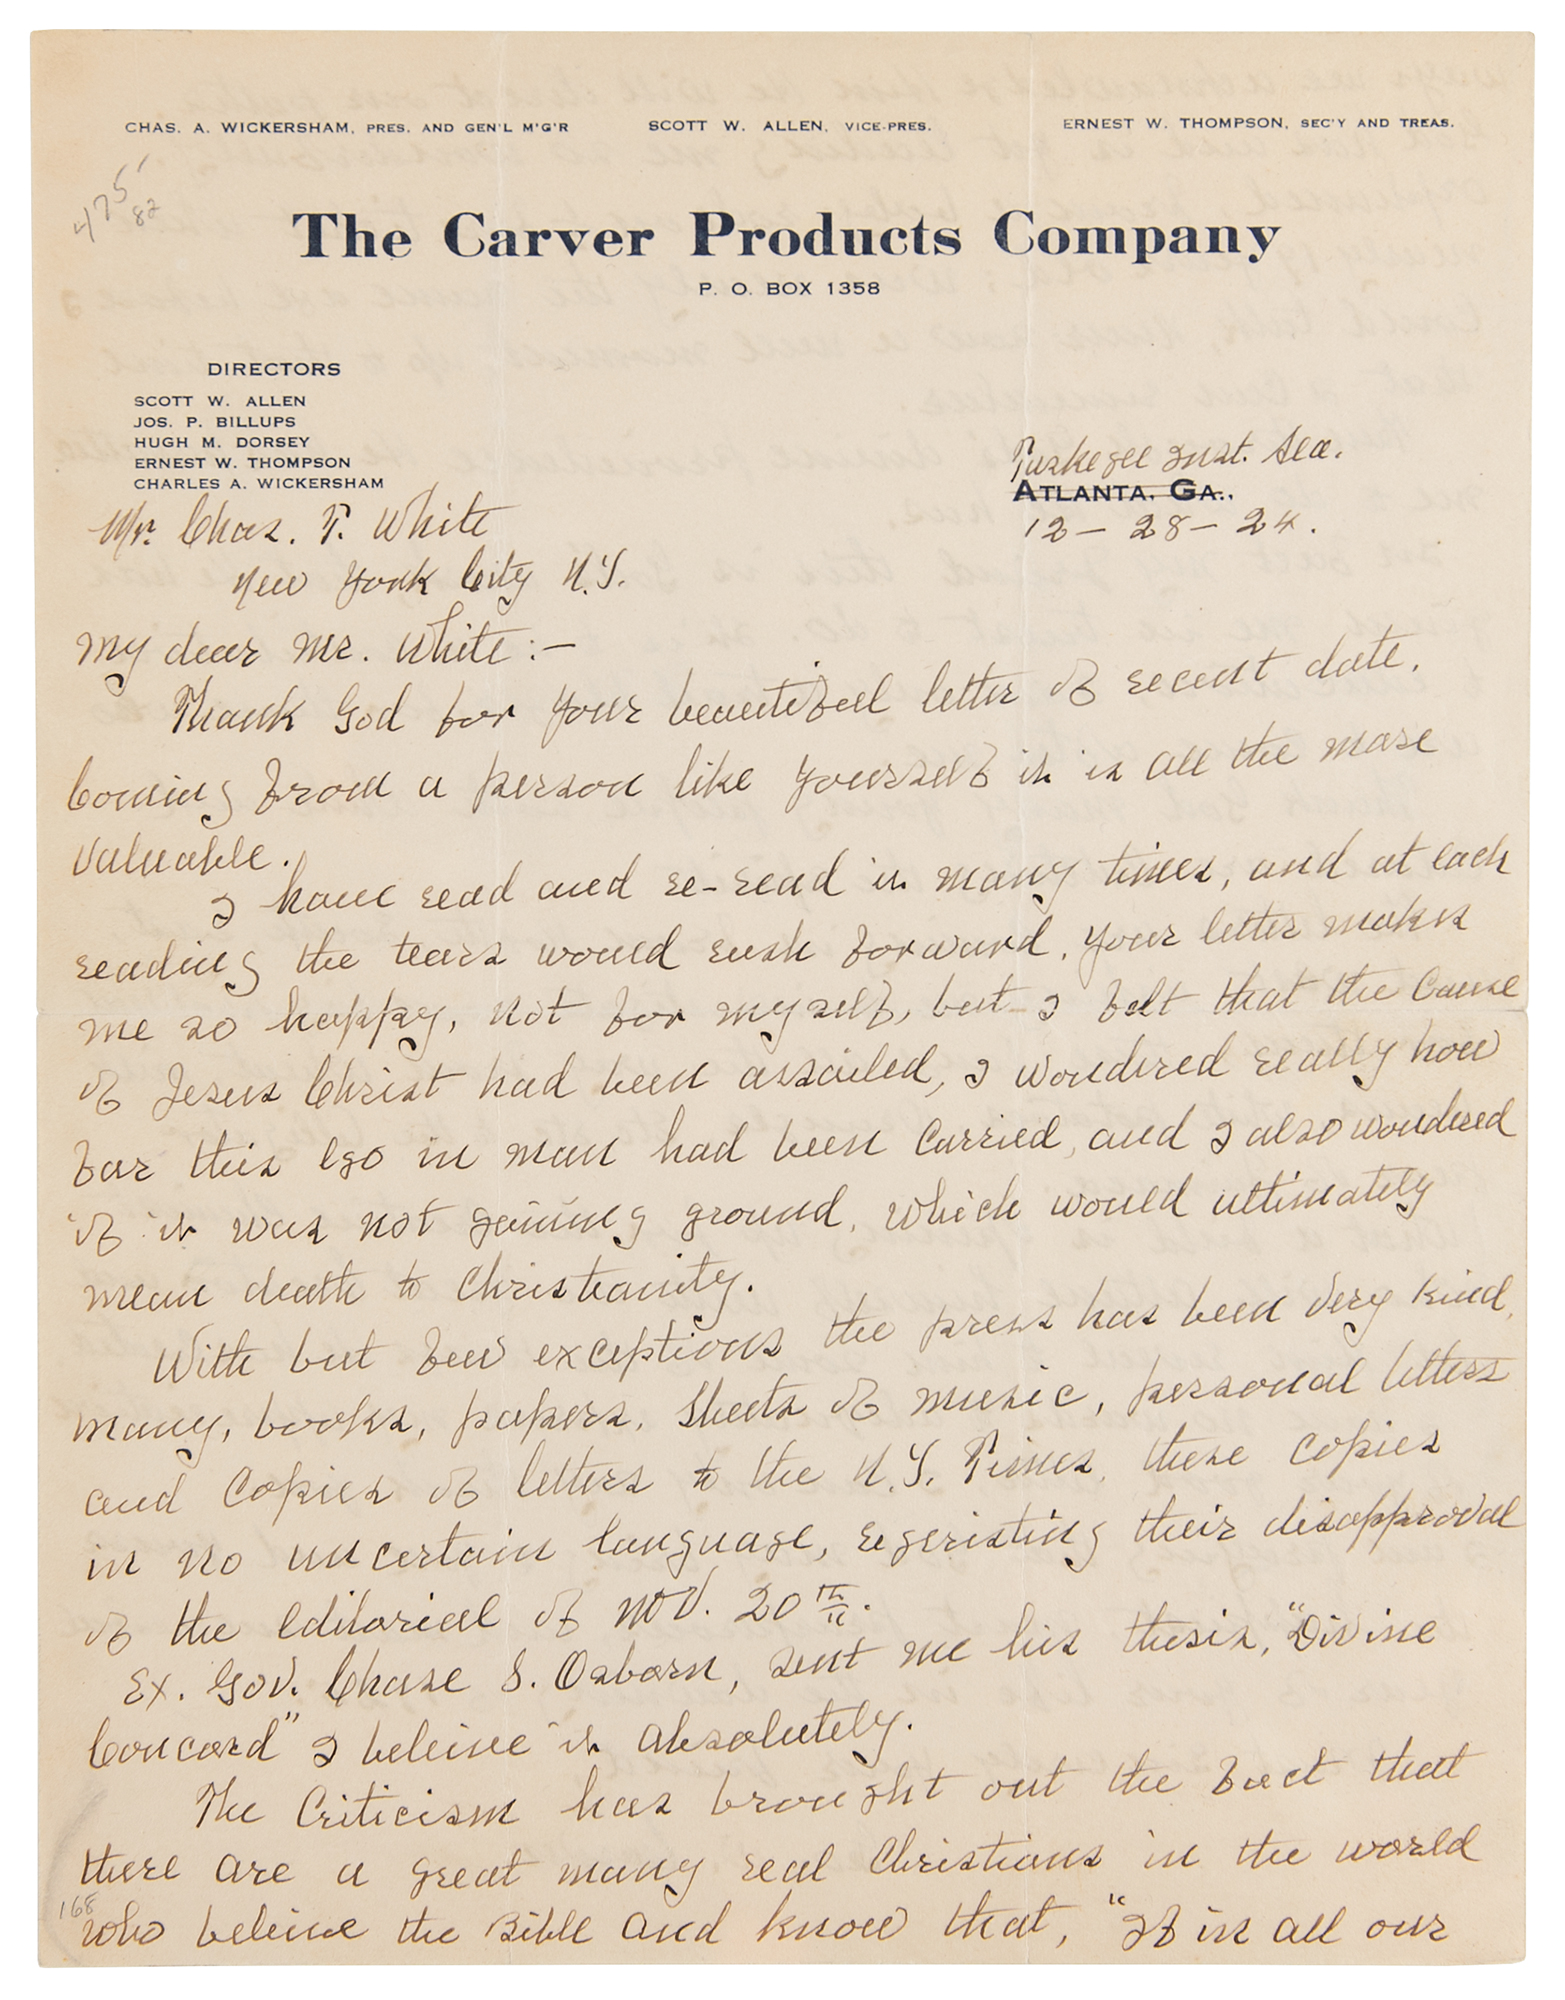 CHAS. A. WICKERSHAM, PRES. AND GEN'L M'G'R SCOTT W. ALLEN, VICE-PRES. ERNEST W. THOMPSON, SEC'Y AND TREAS.
475
82
The Carver Products Company
P. O. BOX 1358
DIRECTORS
SCOTT W. ALLEN
JOS. P. BILLUPS
HUGH M. DORSEY
ERNEST W. THOMPSON
CHARLES A. WICKERSHAM
Tuskegee Inst. Ala.
ATLANTA, GA.,
12-28-24.
Mr. Chas. T. White
New York City N.Y.
My dear Mr. White:-
Thank God for your beautiful letter of recent date.
Coming from a person like yourself it is all the more
valuable.
I have read and re-read it many times, and at each
reading the tears would rush forward. Your letter makes
me so happy, not for myself, but I felt that the Cause
of Jesus Christ had been assailed, I wondered really how
far this Ego in man had been carried, and I also wondered
if it was not gaining ground, which would ultimately
mean death to Christianity.
With but few exceptions the press has been very kind,
many, books, papers, sheets of music, personal letters
and copies of letters to the N.Y. Times, these copies
in no uncertain language, regeristing their disapproval
of the editorial of Nov. 20th.
Ex. Gov. Chase S. Osborn, sent me his thesis, "Divine
Concord" I beleive it absolutely.
The Criticism has brought out the fact that
there are a great many real Christians in the world
168
who beleive the Bible and know that, "If in all our